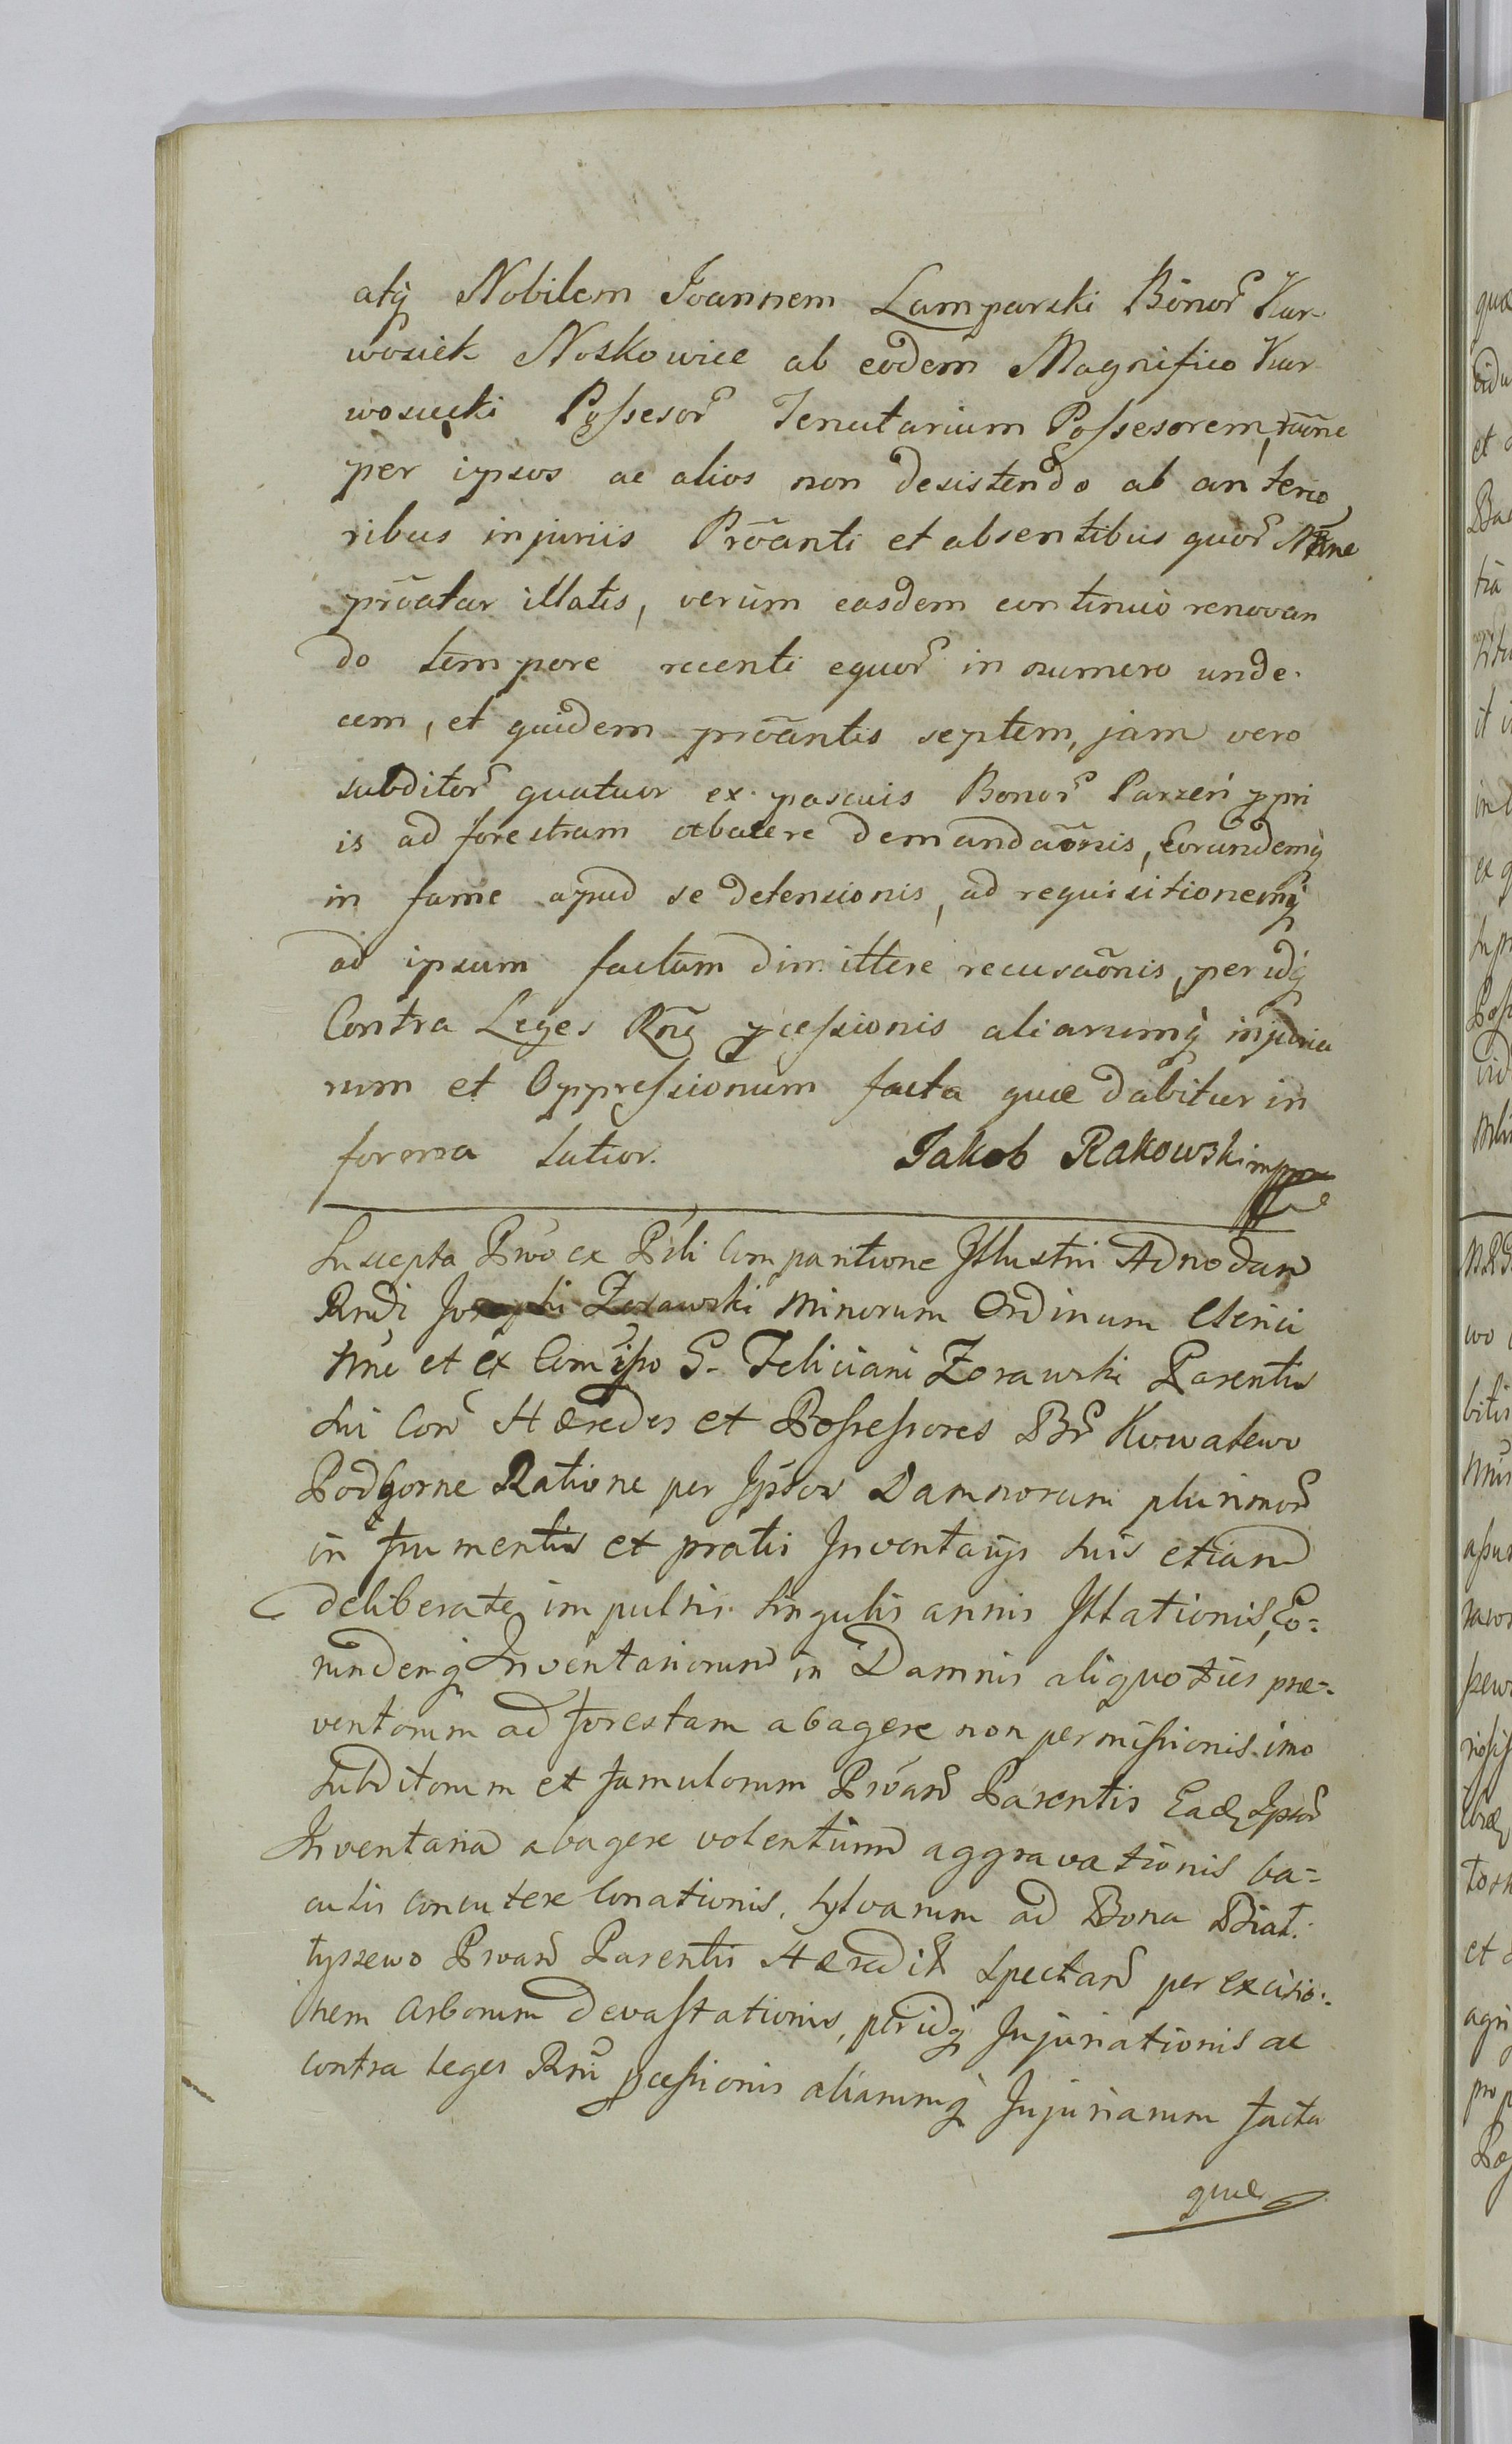 atq̃ Nobilem Joannem Lamparski Bonor̃ Kar-
wosiek Noskowice ab eodem Magnifico Kar-
wosiecki Possesor̃ Tenutarium Possesorem, rãone
per ipsos ac alios non desistendo ab anterio
ribus injuriis Prõanti et absentibus quor̃ Nõne
prõatur illatis, verum easdem continuo renovan
do tempore recenti equor̃ in numero unde-
cem, et quidem prõantis septem, jam vero
subditor̃ quatuor ex pascuis Bonor̃ Parzeń ppri
is ad forestram abacere demandaõnis, Eorundemq̃
in fame apud se detensionis, ad requisitionemq̃
ad ipsum factum dimittere recusaõnis, per idq̃
Contra Leges Rñi pcessionis aliarumq̃ injuria
rum et Oppressionum facta quæ dabitur in
forma latior. Jakob Rakowski mpp
Suscepta Prõo ex Pñli Comparitione Illustri Adnodum
Rndi Josephi Zorawski Minorum Ordinum Clerici
Nñe et ex Comisso G. Feliciani Zorawski Parentis
sui Con̄ Hæredes et Possessores Br̃ Kowalewo
Podgorne Ratione per Ipsos Damnorum plurimor̃
in frumentis et pratis Inventarijs suis etiam
deliberate impulsis singulis annis Illationis, Eo=
rundemq̃ Inventariorum in Damnis aliquoties præ=
ventorum ad forestam abagere non permissionis imo
Subditorum et famulorum Prõan̄ Parentis Eadq̃ Ipsor̃
Inventaria abagere volentium aggravationis ba=
culis concutere Conationis, sylvarum ad Bona Biał.
tyszewo Prõan̄ Parentis Hæredit̃ spectan̄ per excisio:
nem Arborum devastationis, per idq̃ Injuriationis ac
contra leges Rñi pcessionis aliarumq̃ Injuriarum facta
quæ